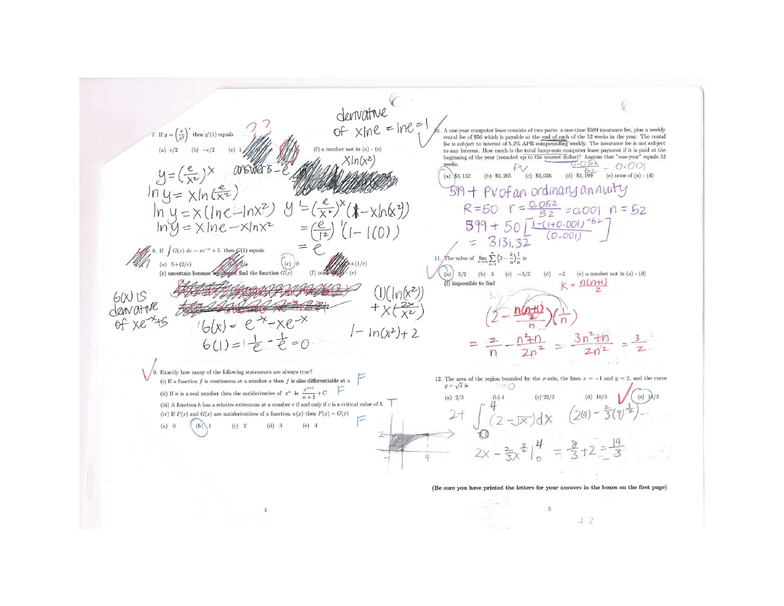 7. If y = (e/x²)^x then y'(1) equals
(a) e/2 (b) −e/2 (c) 1
(f) a number not in (a) - (e)
??
derivative
of xlne = lne = 1
xln(x²)
y = (e/x²)^x answers - e
ln y = xln(e/x²)
ln y = x(lne − lnx²)
ln y = xlne − xlnx²
= (e/1²)'(1 − 1(0))
= e
8. If ∫ G(x) dx = xe^−x + 5 then G(1) equals
(a) 5+(2/e) (c) 0
(e) uncertain because find the function G(x)
G(x) is
derivative
of xe^−x+5
G(x) = e^−x − xe^−x
G(1) = 1/e − 1/e = 0
(1)(ln(x²))
+ x(2x/x²)
1 − ln(x²) + 2
9. Exactly how many of the following statements are always true?
(i) If a function f is continuous at a number a then f is also differentiable at a F
(ii) If n is a real number then the antiderivative of x^n is x^(n+1)/(n+1) + C F
(iii) A function h has a relative extremum at a number c if and only if c is a critical value of h T
(iv) If F(x) and G(x) are antiderivatives of a function u(x) then F(x) = G(x) F
(a) 0 (b) 1 (c) 2 (d) 3 (e) 4
4
10. A one-year computer lease consists of two parts: a one-time $599 insurance fee, plus a weekly
rental fee of $50 which is payable at the end of each of the 52 weeks in the year. The rental
fee is subject to interest of 5.2% APR compounding weekly. The insurance fee is not subject
to any interest. How much is the total lump-sum computer lease payment if it is paid at the
beginning of the year (rounded up to the nearest dollar)? Assume that "one-year" equals 52
weeks.
PV 0.052/52 = 0.001
(a) $3,132 (b) $3,265 (c) $3,036 (e) none of (a) - (d)
599 + PV of an ordinary annuity
R=50 r = 0.052/52 = 0.001 n = 52
599 + 50[1−(1+0.001)^−52/(0.001)]
= 3131.32
11. The value of
(a) 3/2 (b) 3 (c) −3/2 (d) −2 (e) a number not in (a) - (d)
(f) impossible to find
K = n(n+1)/2
= 2/n − n²+n/2n² = 3n²+n/2n² = 3/2
12. The area of the region bounded by the x-axis, the lines x = −1 and y = 2, and the curve
y = √x is
(a) 2/3 (b) 4 (c) 22/3 (d) 16/3 (e) 14/3
2+ ∫₀⁴ (2−√x)dx
2
-1 4
2x − 2/3x^3/2 |₀⁴ = 8/3 + 2 = 14/3
(Be sure you have printed the letters for your answers in the boxes on the first page)
5
+2